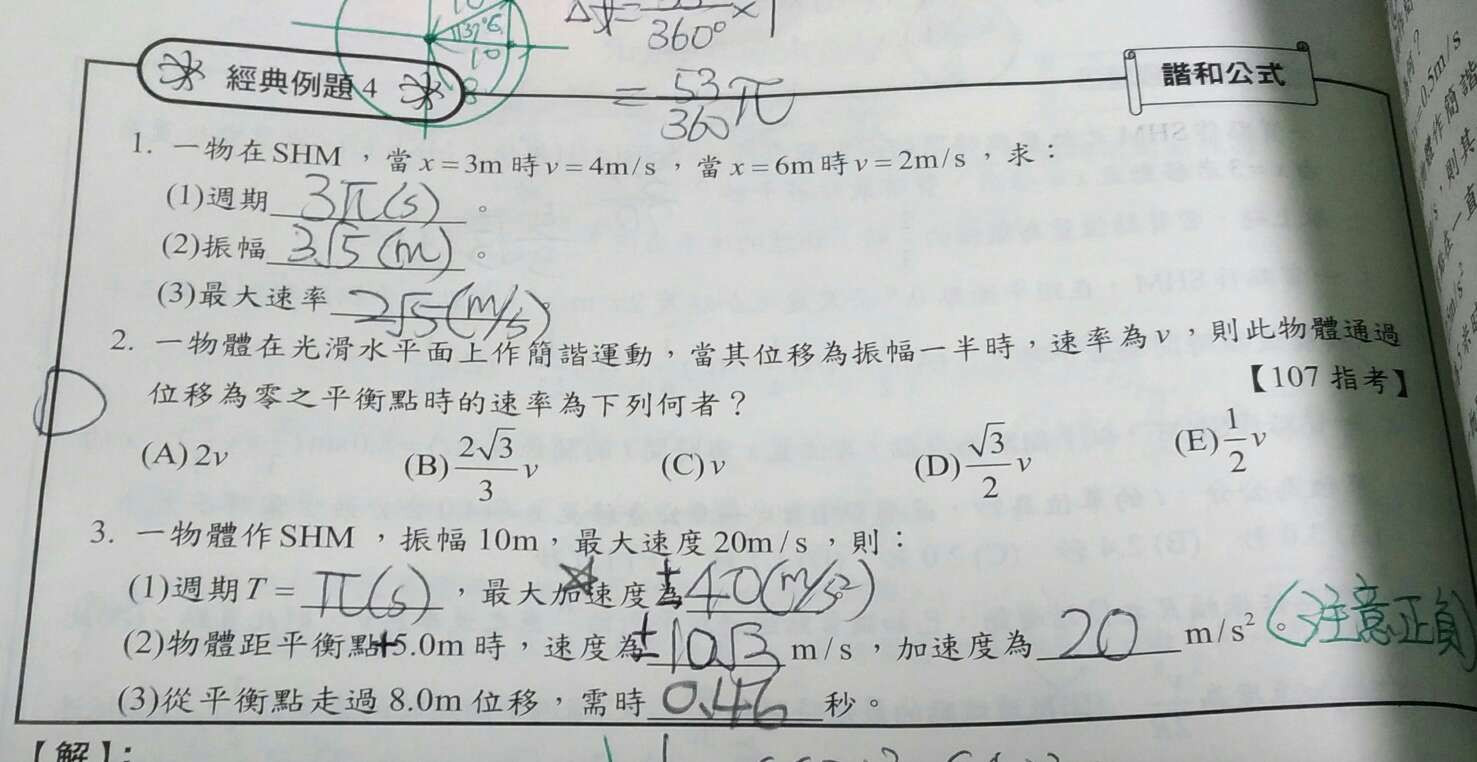 10
π37°6
10
8
360° × 1
= 53/360 π
經典例題 4
諧和公式
1. 一物在SHM，當 x = 3m 時 v = 4m/s，當 x = 6m 時 v = 2m/s，求：
(1)週期 3π(s)。
(2)振幅 3√5(m)。
(3)最大速率 2√5(m/s)。
2. 一物體在光滑水平面上作簡諧運動，當其位移為振幅一半時，速率為 v，則此物體通過
位移為零之平衡點時的速率為下列何者？ 【107 指考】
(A) 2v (B) 2√3/3 v (C) v (D) √3/2 v (E) 1/2 v
3. 一物體作SHM，振幅 10m，最大速度 20m/s，則：
(1)週期 T = π(s)，最大加速度為 ±40(m/s²)
(2)物體距平衡點+5.0m 時，速度為 ±10√3 m/s，加速度為 20 m/s²。(注意正負)
(3)從平衡點走過 8.0m 位移，需時 0.46 秒。
【解】：